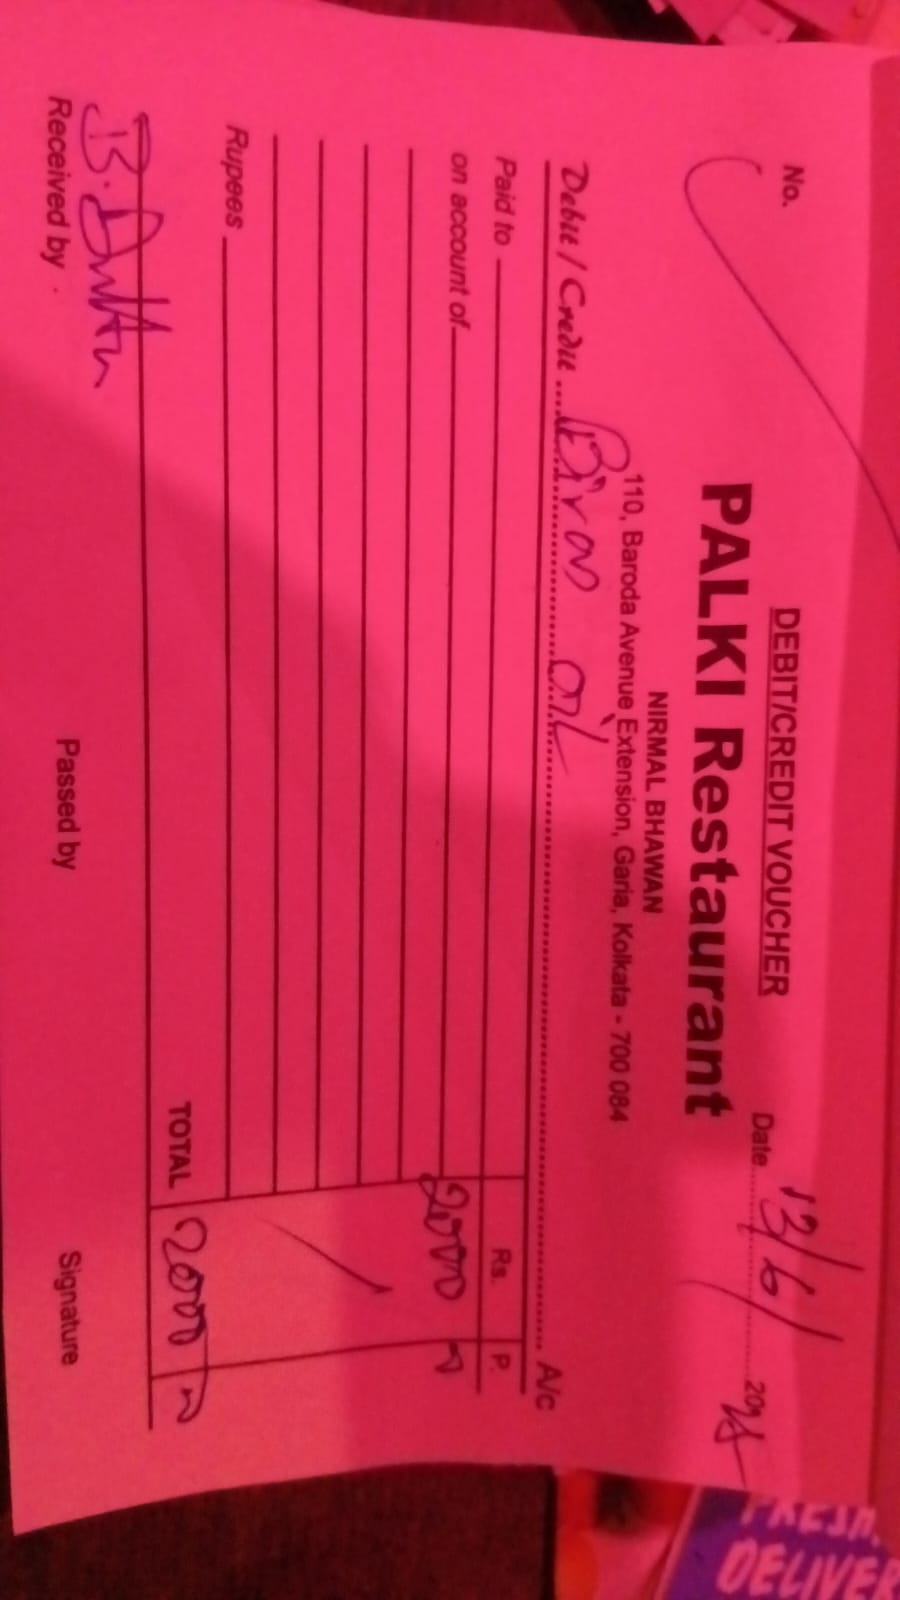 No.
DEBIT/CREDIT VOUCHER
Date 13/6/ 20
PALKI Restaurant
NIRMAL BHAWAN
110, Baroda Avenue Extension, Garia, Kolkata - 700 084
Debit / Credit A/c
Paid to Rs. P.
on account of 2000
Rupees
TOTAL 2000
B. Dutta
Received by Passed by Signature
FRESH
DELIVER